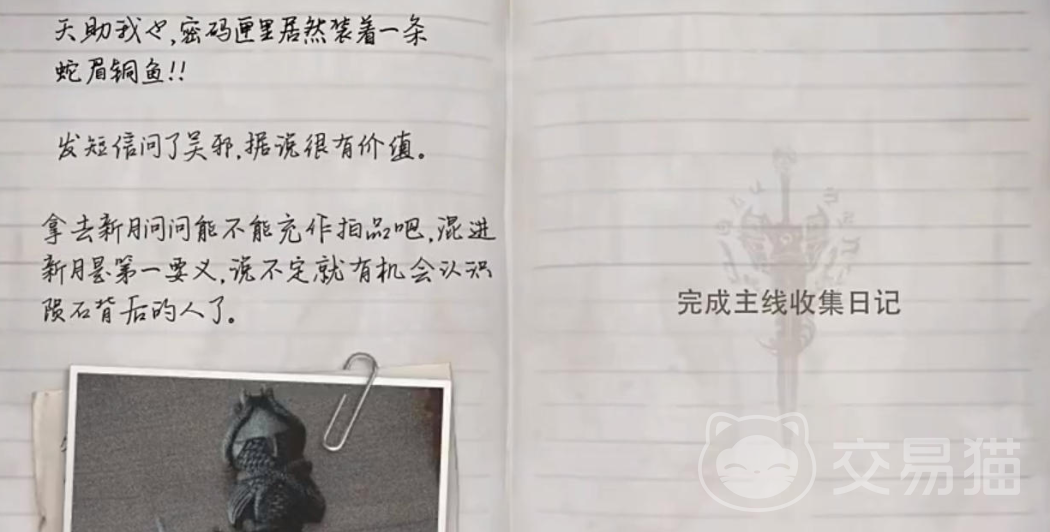 天助我也,密码匣里居然装着一条
蛇眉铜鱼!!
发短信问了吴邪,据说很有价值。
拿去新月问问能不能充作拍品吧,混进
新月是第一要义,说不定就有机会认识
陨石背后的人了。
完成主线收集日记
交易猫